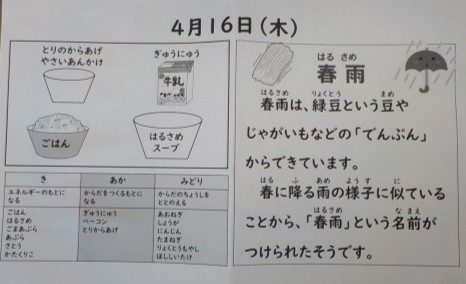 4月16日(木)
とりのからあげ
やさいあんかけ
ぎゅうにゅう
牛乳
ごはん
はるさめ
スープ
き
あか
みどり
エネルギーのもとに
なる
からだをつくるもとに
なる
からだのちょうしを
ととのえる
ごはん
はるさめ
ごまあぶら
あぶら
さとう
かたくりこ
ぎゅうにゅう
ベーコン
とりからあげ
あおねぎ
しょうが
にんじん
たまねぎ
りょくとうもやし
ほししいたけ
はる さめ
春雨
はるさめ りょくとう まめ
春雨は、緑豆という豆や
じゃがいもなどの「でんぷん」
からできています。
はる ふ あめ ようす に
春に降る雨の様子に似ている
はるさめ なまえ
ことから、「春雨」という名前が
つけられたそうです。